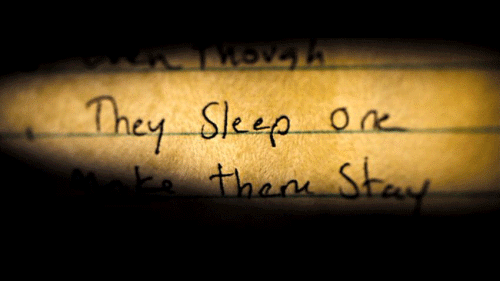 Even Though
They Sleep One
Make them Stay